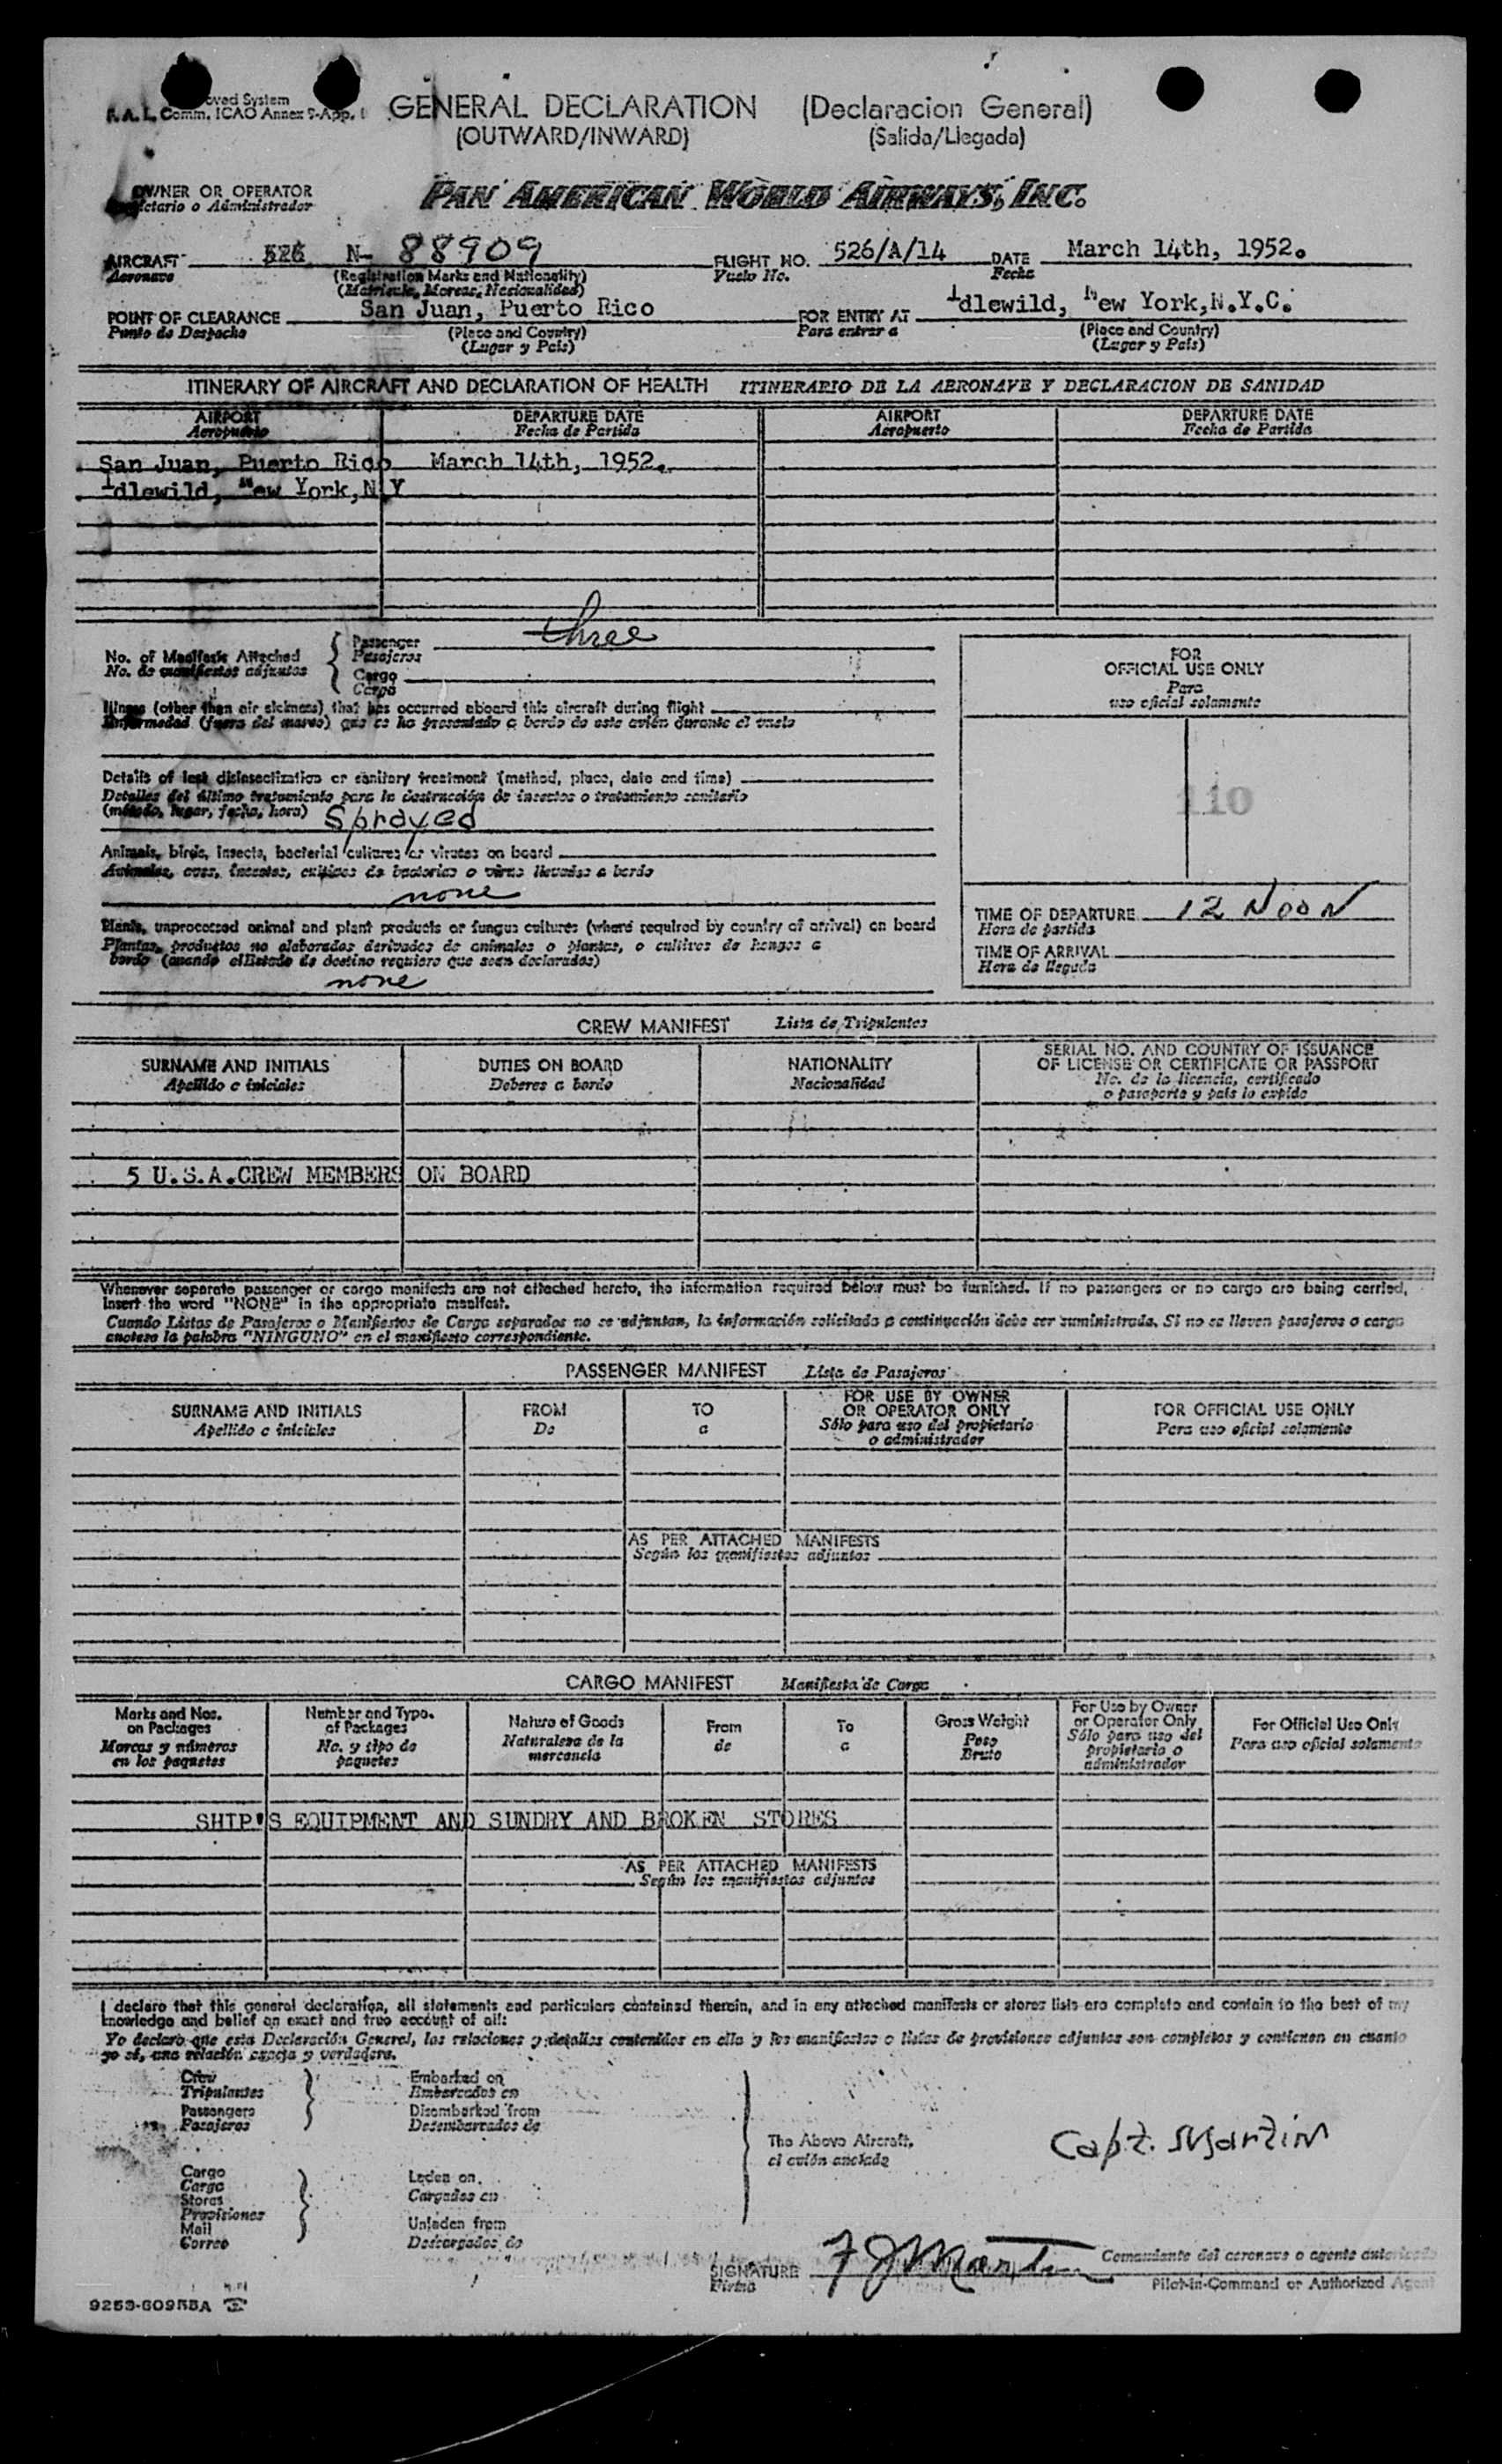 oved System
F. A. L. Comm. ICAO Annex 9-App. 1
GENERAL DECLARATION (Declaracion General)
(OUTWARD/INWARD) (Salida/Llegada)
OWNER OR OPERATOR
PAN AMERICAN WORLD AIRWAYS, INC.
AIRCRAFT 526 N- 88909 FLIGHT NO. 526/A/14 DATE March 14th, 1952.
Aeronave (Registration Marks and Nationality) Vuelo No. Fecha
(Matricula, Marcas, Nacionalidad)
POINT OF CLEARANCE San Juan, Puerto Rico FOR ENTRY AT Idlewild, New York,N.Y.C.
Punto de Despacho (Place and Country) Para entrar a (Place and Country)
(Lugar y Pais) (Lugar y Pais)
ITINERARY OF AIRCRAFT AND DECLARATION OF HEALTH ITINERARIO DE LA AERONAVE Y DECLARACION DE SANIDAD
AIRPORT DEPARTURE DATE AIRPORT DEPARTURE DATE
Aeropuerto Fecha de Partida Aeropuerto Fecha de Partida
San Juan, Puerto Rico March 14th, 1952.
Idlewild, New York,N.Y
No. of Manifests Attached Passenger three
No. de manifiestos adjuntos Pasajeros
Cargo
Carga
Illness (other than air sickness) that has occurred aboard this aircraft during flight
Enfermedad (fuera del mareo) que se ha presentado a bordo de este avión durante el vuelo
Details of last disinsectization or sanitary treatment (method, place, date and time)
Detalles del último tratamiento para la destrucción de insectos o tratamiento sanitario
(método, lugar, fecha, hora) Sprayed
Animals, birds, insects, bacterial cultures or viruses on board
Animales, aves, insectos, cultivos de bacterias o virus llevados a bordo
none
Plants, unprocessed animal and plant products or fungus cultures (where required by country of arrival) on board
Plantas, productos no elaborados derivados de animales o plantas, o cultivos de hongos a
bordo (cuando el Estado de destino requiere que sean declarados)
none
FOR
OFFICIAL USE ONLY
Para
uso oficial solamente
110
TIME OF DEPARTURE 12 NOON
Hora de partida
TIME OF ARRIVAL
Hora de llegada
CREW MANIFEST Lista de Tripulantes
SURNAME AND INITIALS DUTIES ON BOARD NATIONALITY SERIAL NO. AND COUNTRY OF ISSUANCE
OF LICENSE OR CERTIFICATE OR PASSPORT
Apellido e iniciales Deberes a bordo Nacionalidad No. de la licencia, certificado
o pasaporte y pais lo expide
5 U.S.A.CREW MEMBERS ON BOARD
Whenever separate passenger or cargo manifests are not attached hereto, the information required below must be furnished. If no passengers or no cargo are being carried,
insert the word "NONE" in the appropriate manifest.
Cuando Listas de Pasajeros o Manifiestos de Carga separados no se adjuntan, la información solicitada a continuación debe ser suministrada. Si no se lleven pasajeros o carga
anotese la palabra "NINGUNO" en el manifiesto correspondiente.
PASSENGER MANIFEST Lista de Pasajeros
SURNAME AND INITIALS FROM TO FOR USE BY OWNER
OR OPERATOR ONLY FOR OFFICIAL USE ONLY
Apellido e iniciales De a Sólo para uso del propietario
o administrador Para uso oficial solamente
AS PER ATTACHED MANIFESTS
Según los manifiestos adjuntos
CARGO MANIFEST Manifiesta de Carga
Marks and Nos.
on Packages
Marcas y números
en los paquetes
Number and Type.
of Packages
No. y tipo de
paquetes
Nature of Goods
Naturaleza de la
mercancia
From
de
To
a
Gross Weight
Peso
Bruto
For Use by Owner
or Operator Only
Sólo para uso del
propietario o
administrador
For Official Use Only
Para uso oficial solamente
SHIP'S EQUIPMENT AND SUNDRY AND BROKEN STORES
AS PER ATTACHED MANIFESTS
Según los manifiestos adjuntos
I declare that this general declaration, all statements and particulars contained therein, and in any attached manifests or stores lists are complete and contain to the best of my
knowledge and belief an exact and true account of all:
Yo declaro que esta Declaración General, las relaciones y detalles contenidos en ella y los manifiestos o listas de provisiones adjuntos son completos y contienen en cuanto
yo sé, una relación exacta y verdadera.
Crew Embarked on
Tripulantes Embarcados en
Passengers Disembarked from
Pasajeros Desembarcados de
The Above Aircraft,
el avión anotado
Capt. Martin
Cargo Laden on
Carga Cargados en
Stores
Provisiones
Mail Unladen from
Correo Descargados de
SIGNATURE F J Martin Comandante del aeronave o agente autorizado
Firma Pilot-in-Command or Authorized Agent
9253-60955A